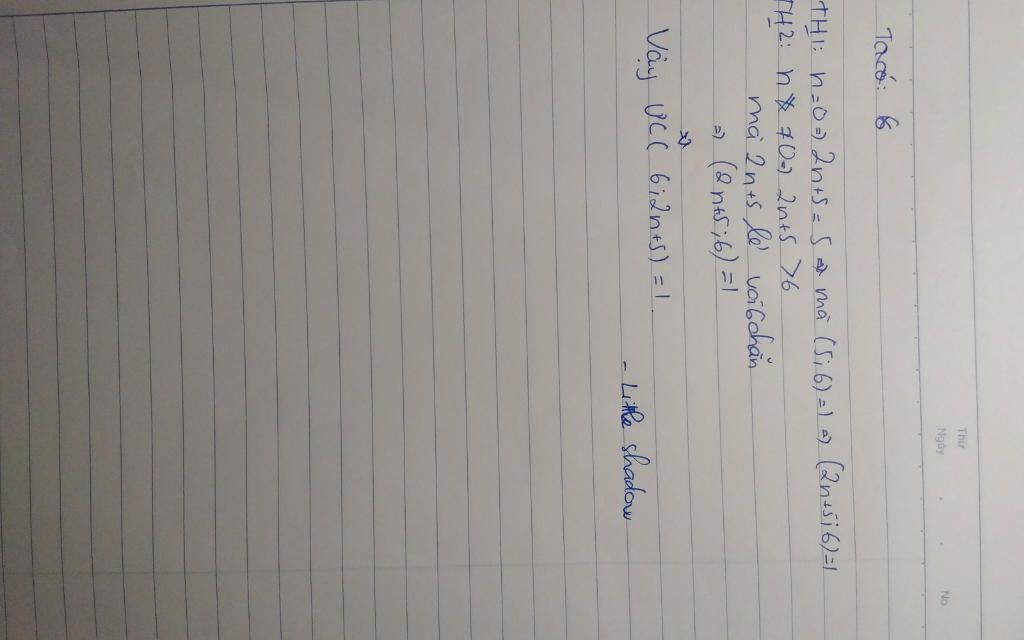 Thứ
Ngày
No.
Ta có: 6
TH1: n=0 => 2n+5 = 5 => mà (5;6)=1 => (2n+5;6)=1
TH2: n ≠0=> 2n+5 >6
mà 2n+5 lẻ với 6 chẵn
=> (2n+5;6)=1
Vậy ƯC( 6;2n+5) =1.
- Little shadow